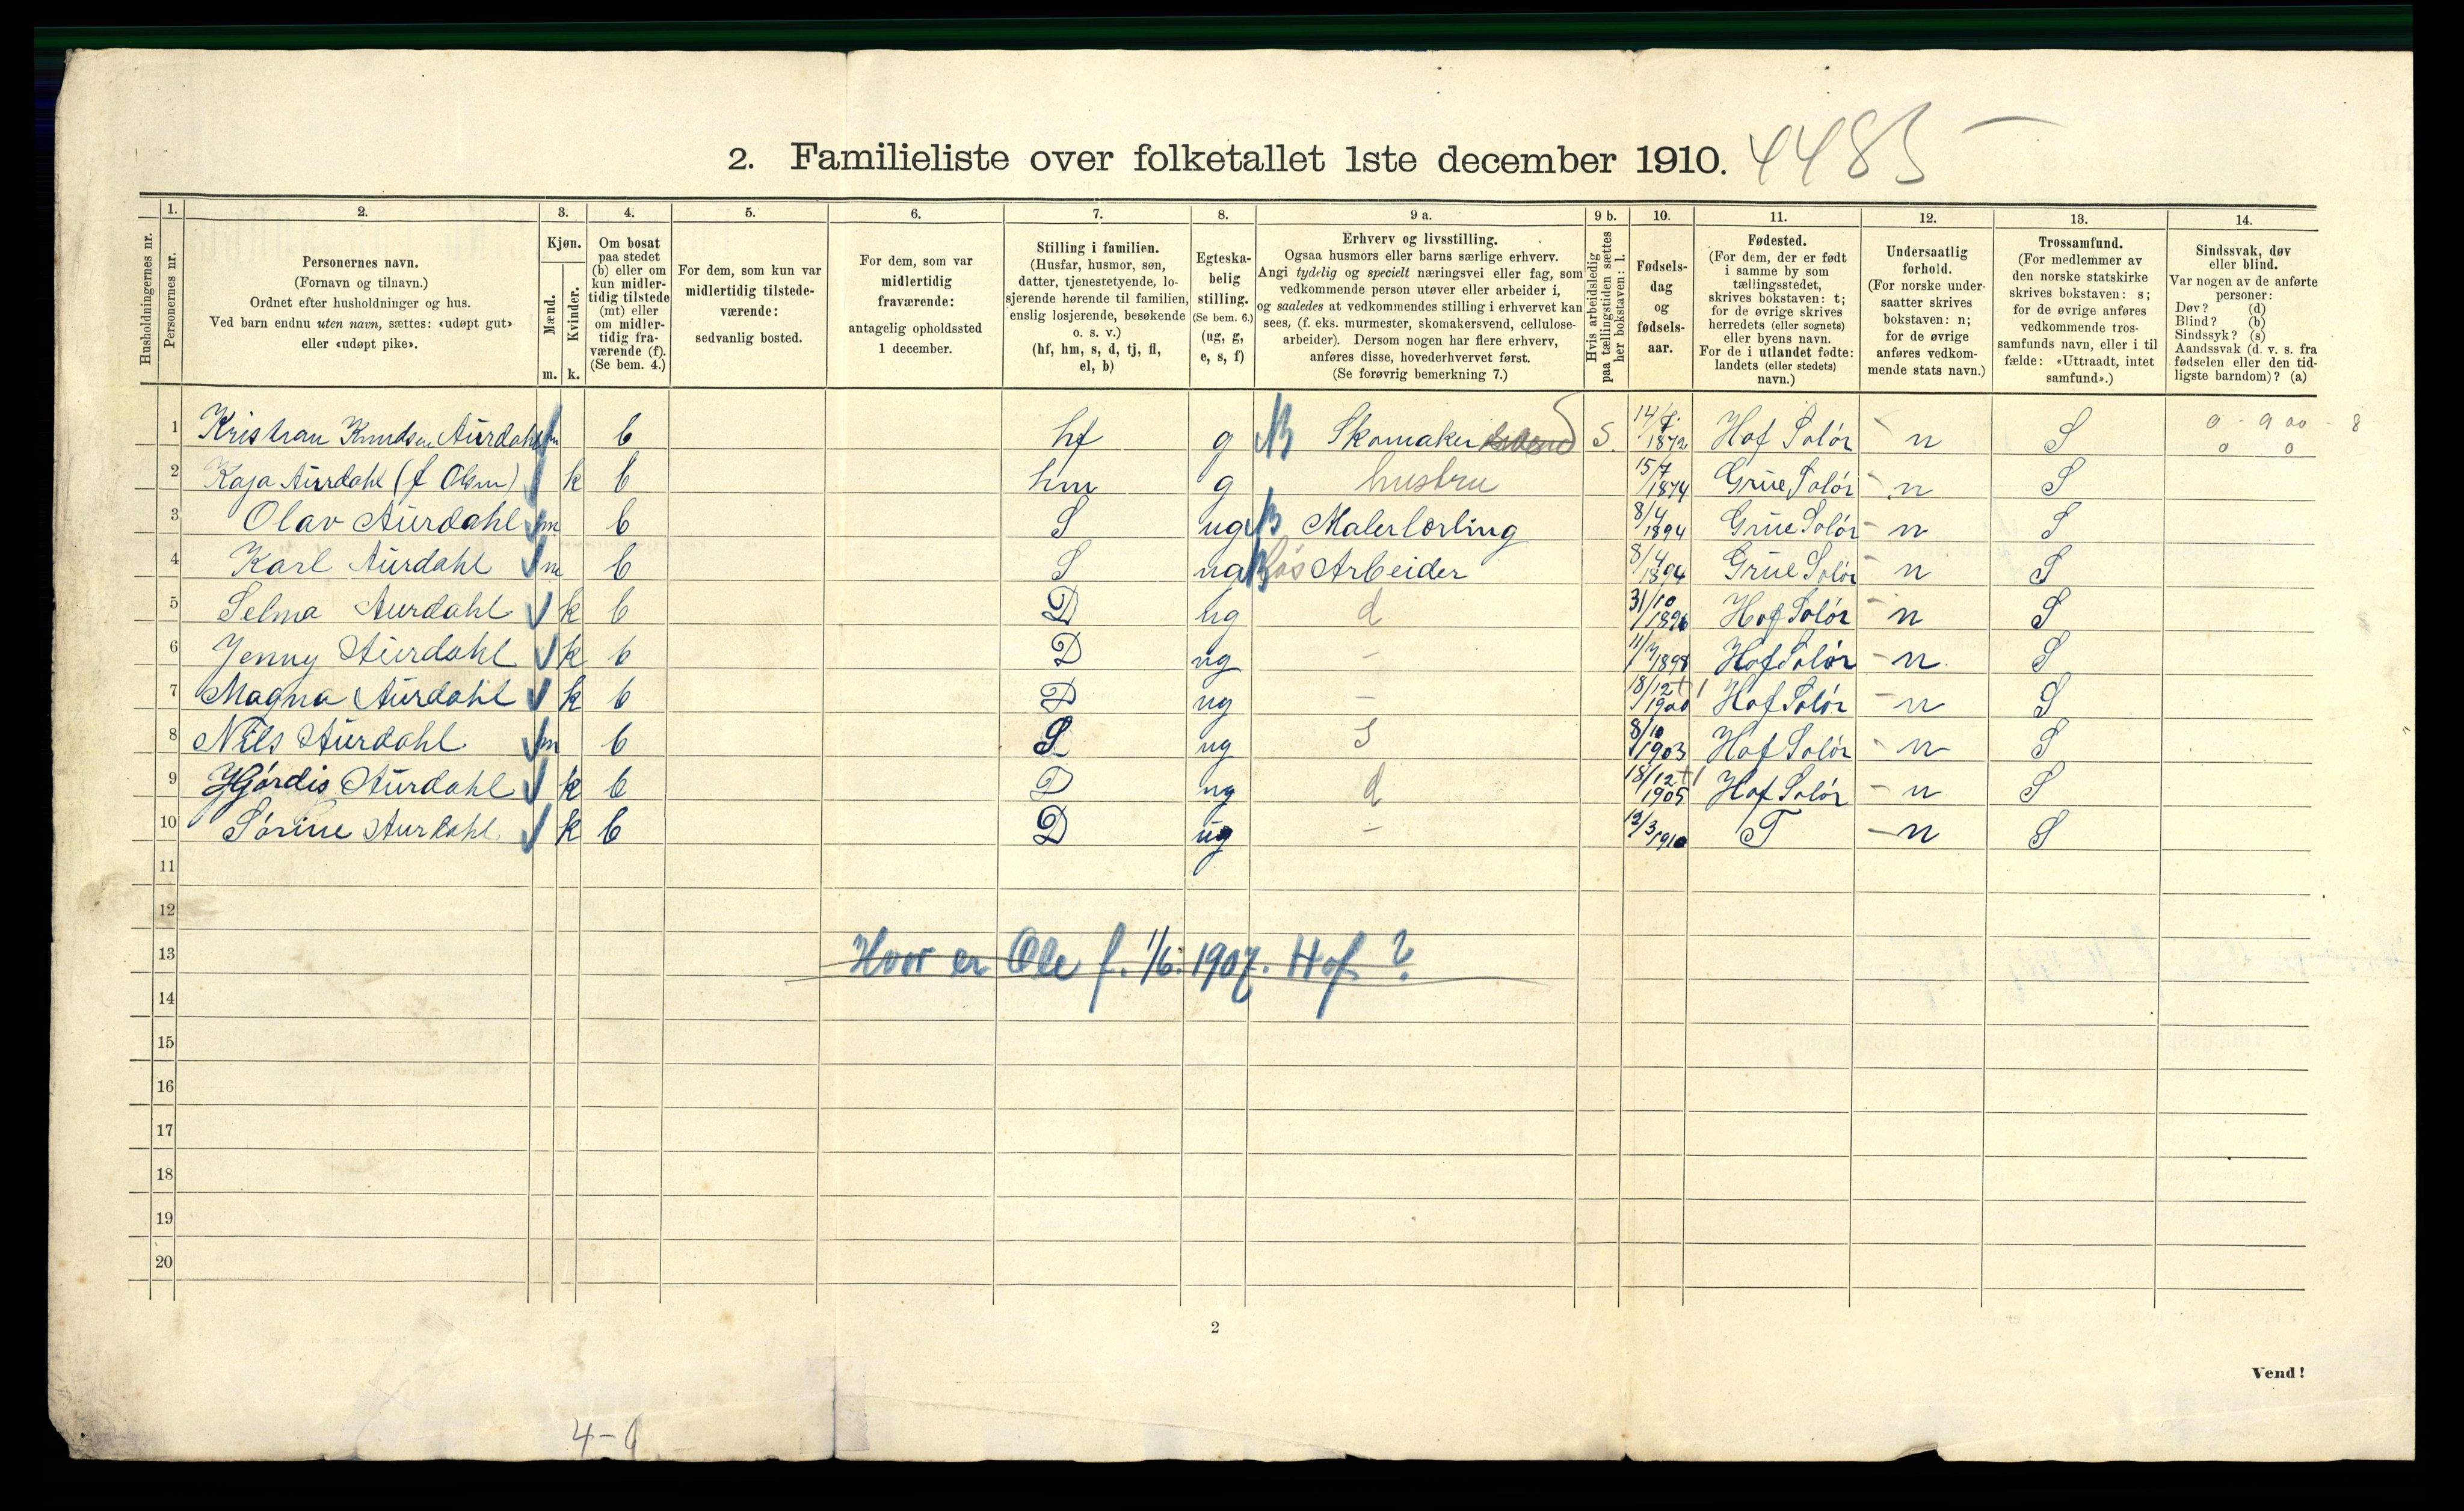 2. Familieliste over folketallet 1ste december 1910. 4485 —
1. 2. 3. 4. 5. 6. 7. 8. 9 a. 9 b. 10. 11. 12. 13. 14.
Husholdningernes nr.
Personernes nr.
Personernes navn.
(Fornavn og tilnavn.)
Ordnet efter husholdninger og hus.
Ved barn endnu uten navn, sættes: «udøpt gut»
eller «udøpt pike».
Kjøn.
Mænd.
Kvinder.
m. k.
Om bosat
paa stedet
(b) eller om
kun midler-
tidig tilstede
(mt) eller
om midler-
tidig fra-
værende (f).
(Se bem. 4.)
For dem, som kun var
midlertidig tilstede-
værende:
sedvanlig bosted.
For dem, som var
midlertidig
fraværende:
antagelig opholdssted
1 december.
Stilling i familien.
(Husfar, husmor, søn,
datter, tjenestetyende, lo-
sjerende hørende til familien,
enslig losjerende, besøkende
o. s. v.)
(hf, hm, s, d, tj, fl,
el, b)
Egteska-
belig
stilling.
(Se bem. 6.)
(ug, g,
e, s, f)
Erhverv og livsstilling.
Ogsaa husmors eller barns særlige erhverv.
Angi tydelig og specielt næringsvei eller fag, som
vedkommende person utøver eller arbeider i,
og saaledes at vedkommendes stilling i erhvervet kan
sees, (f. eks. murmester, skomakersvend, cellulose-
arbeider). Dersom nogen har flere erhverv,
anføres disse, hovederhvervet først.
(Se forøvrig bemerkning 7.)
Hvis arbeidsledig
paa tællingstiden sættes
her bokstaven: l.
Fødsels-
dag
og
fødsels-
aar.
Fødested.
(For dem, der er født
i samme by som
tællingsstedet,
skrives bokstaven: t;
for de øvrige skrives
herredets (eller sognets)
eller byens navn.
For de i utlandet fødte:
landets (eller stedets)
navn.)
Undersaatlig
forhold.
(For norske under-
saatter skrives
bokstaven: n;
for de øvrige
anføres vedkom-
mende stats navn.)
Trossamfund.
(For medlemmer av
den norske statskirke
skrives bokstaven: s;
for de øvrige anføres
vedkommende tros-
samfunds navn, eller i til
fælde: «Uttraadt, intet
samfund».)
Sindssvak, døv
eller blind.
Var nogen av de anførte
personer:
Døv? (d)
Blind? (b)
Sindssyk? (s)
Aandssvak (d. v. s. fra
fødselen eller den tid-
ligste barndom)? (a)
1 Kristian Knudsen Aurdahl m b hf g Skomaker svend S. 1872 Hof Solør n S
2 Kaja Aurdahl (f Olsen) k b hm g hustru 15/7 1874 Grue Solør n S
3 Olav Aurdahl m b S ug Malerlærling 8/4 1894 Grue Solør n S
4 Karl Aurdahl m b S ug Løs Arbeider 8/4 1894 Grue Solør n S
5 Selma Aurdahl k b D ug d 31/10 1896 Hof Solør n S
6 Jenny Aurdahl k b D ug – 1898 Hof Solør n S
7 Magna Aurdahl k b D ug – 18/12 1900 Hof Solør n S
8 Nils Aurdahl m b S ug s 8/10 1903 Hof Solør n S
9 Hjørdis Aurdahl k b D ug d 18/12 1905 Hof Solør n S
10 Sørine Aurdahl k b D ug – 12/3 1910 T n S
11
12
13 Hvor er Ole f. 1/6. 1907. Hof. ?
14
15
16
17
18
19
20
2
Vend!